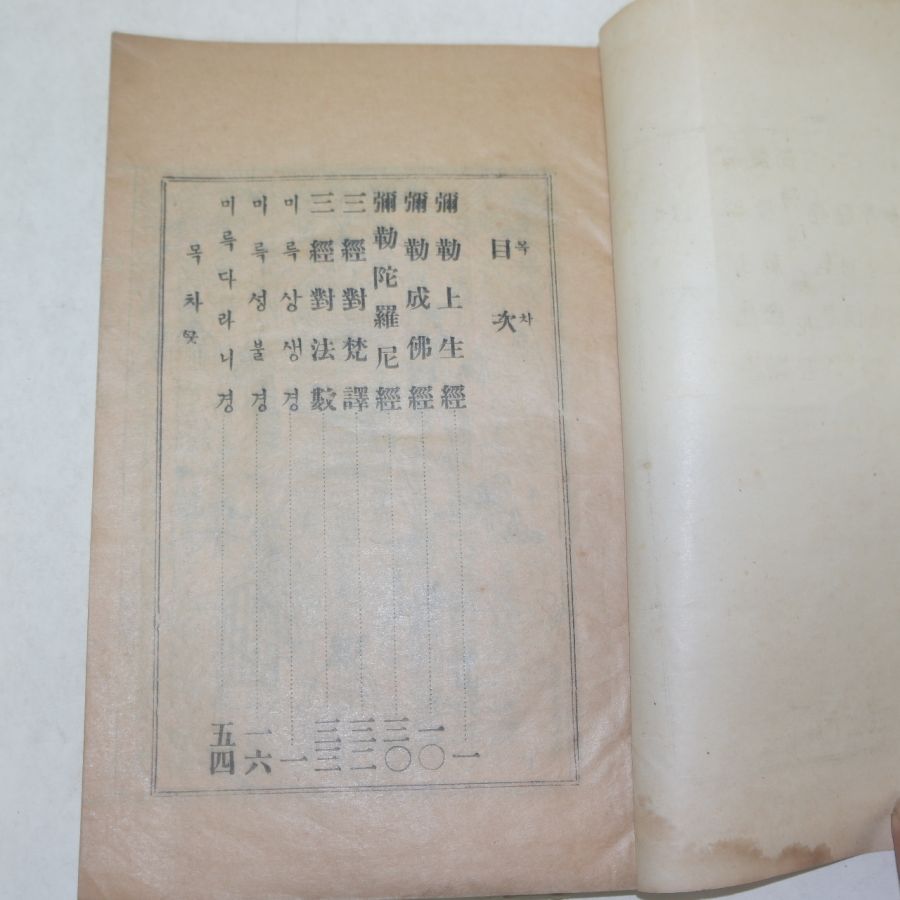 目次
목차
彌勒上生經 一
彌勒成佛經 一〇
彌勒陀羅尼經 三〇
三經對梵譯 三二
三經對法數 三三
미륵상생경 一
미륵성불경 一六
미륵다라니경 五四
목차ᄭᅳᆺ